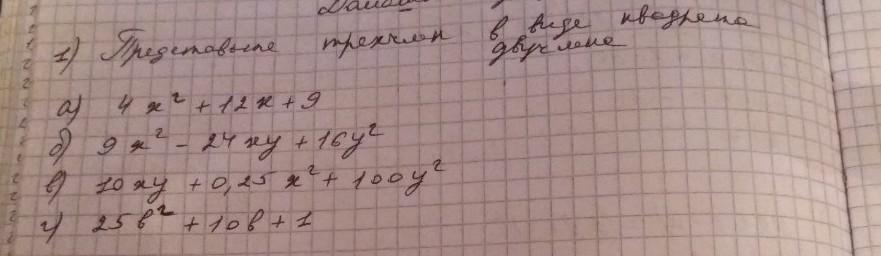 1) Представьте трехчлен в виде квадрата
двучлена
а) 4x² + 12x + 9
б) 9x² - 24xy + 16y²
в) 10xy + 0,25x² + 100y²
г) 25b² + 10b + 1